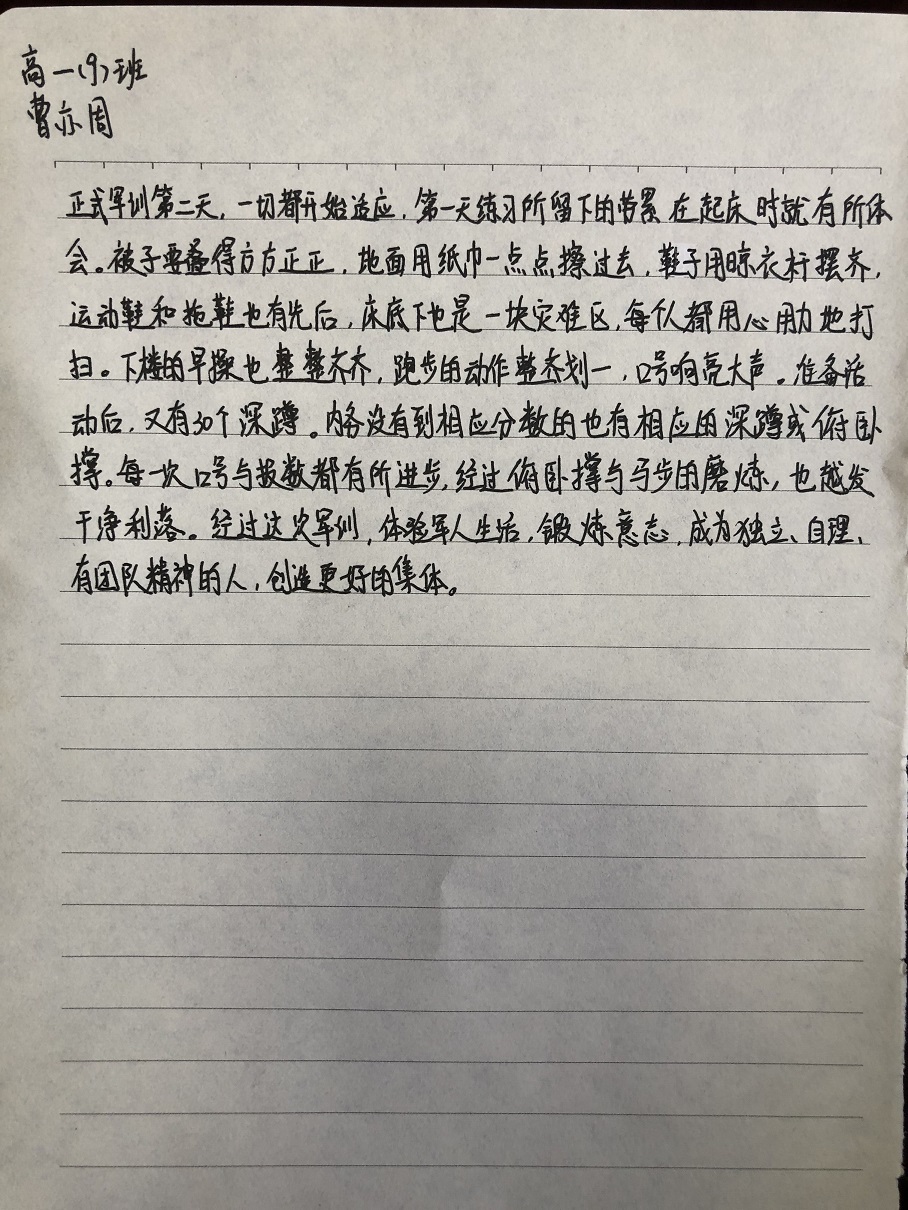 高一(9)班
曹亦周
正式军训第二天，一切都开始适应，第一天练习所留下的劳累在起床时就有所体
会。被子要叠得方方正正，地面用纸巾一点点擦过去，鞋子用晾衣杆摆齐，
运动鞋和拖鞋也有先后，床底下也是一块灾难区，每个人都用心用力地打
扫。下楼的早操也整整齐齐，跑步的动作整齐划一，口号响亮大声。准备活
动后，又有30个深蹲。内务没有到相应分数的也有相应的深蹲或俯卧
撑。每一次口号与报数都有所进步，经过俯卧撑与马步的磨炼，也越发
干净利落。经过这次军训，体验军人生活，锻炼意志，成为独立、自理、
有团队精神的人，创造更好的集体。